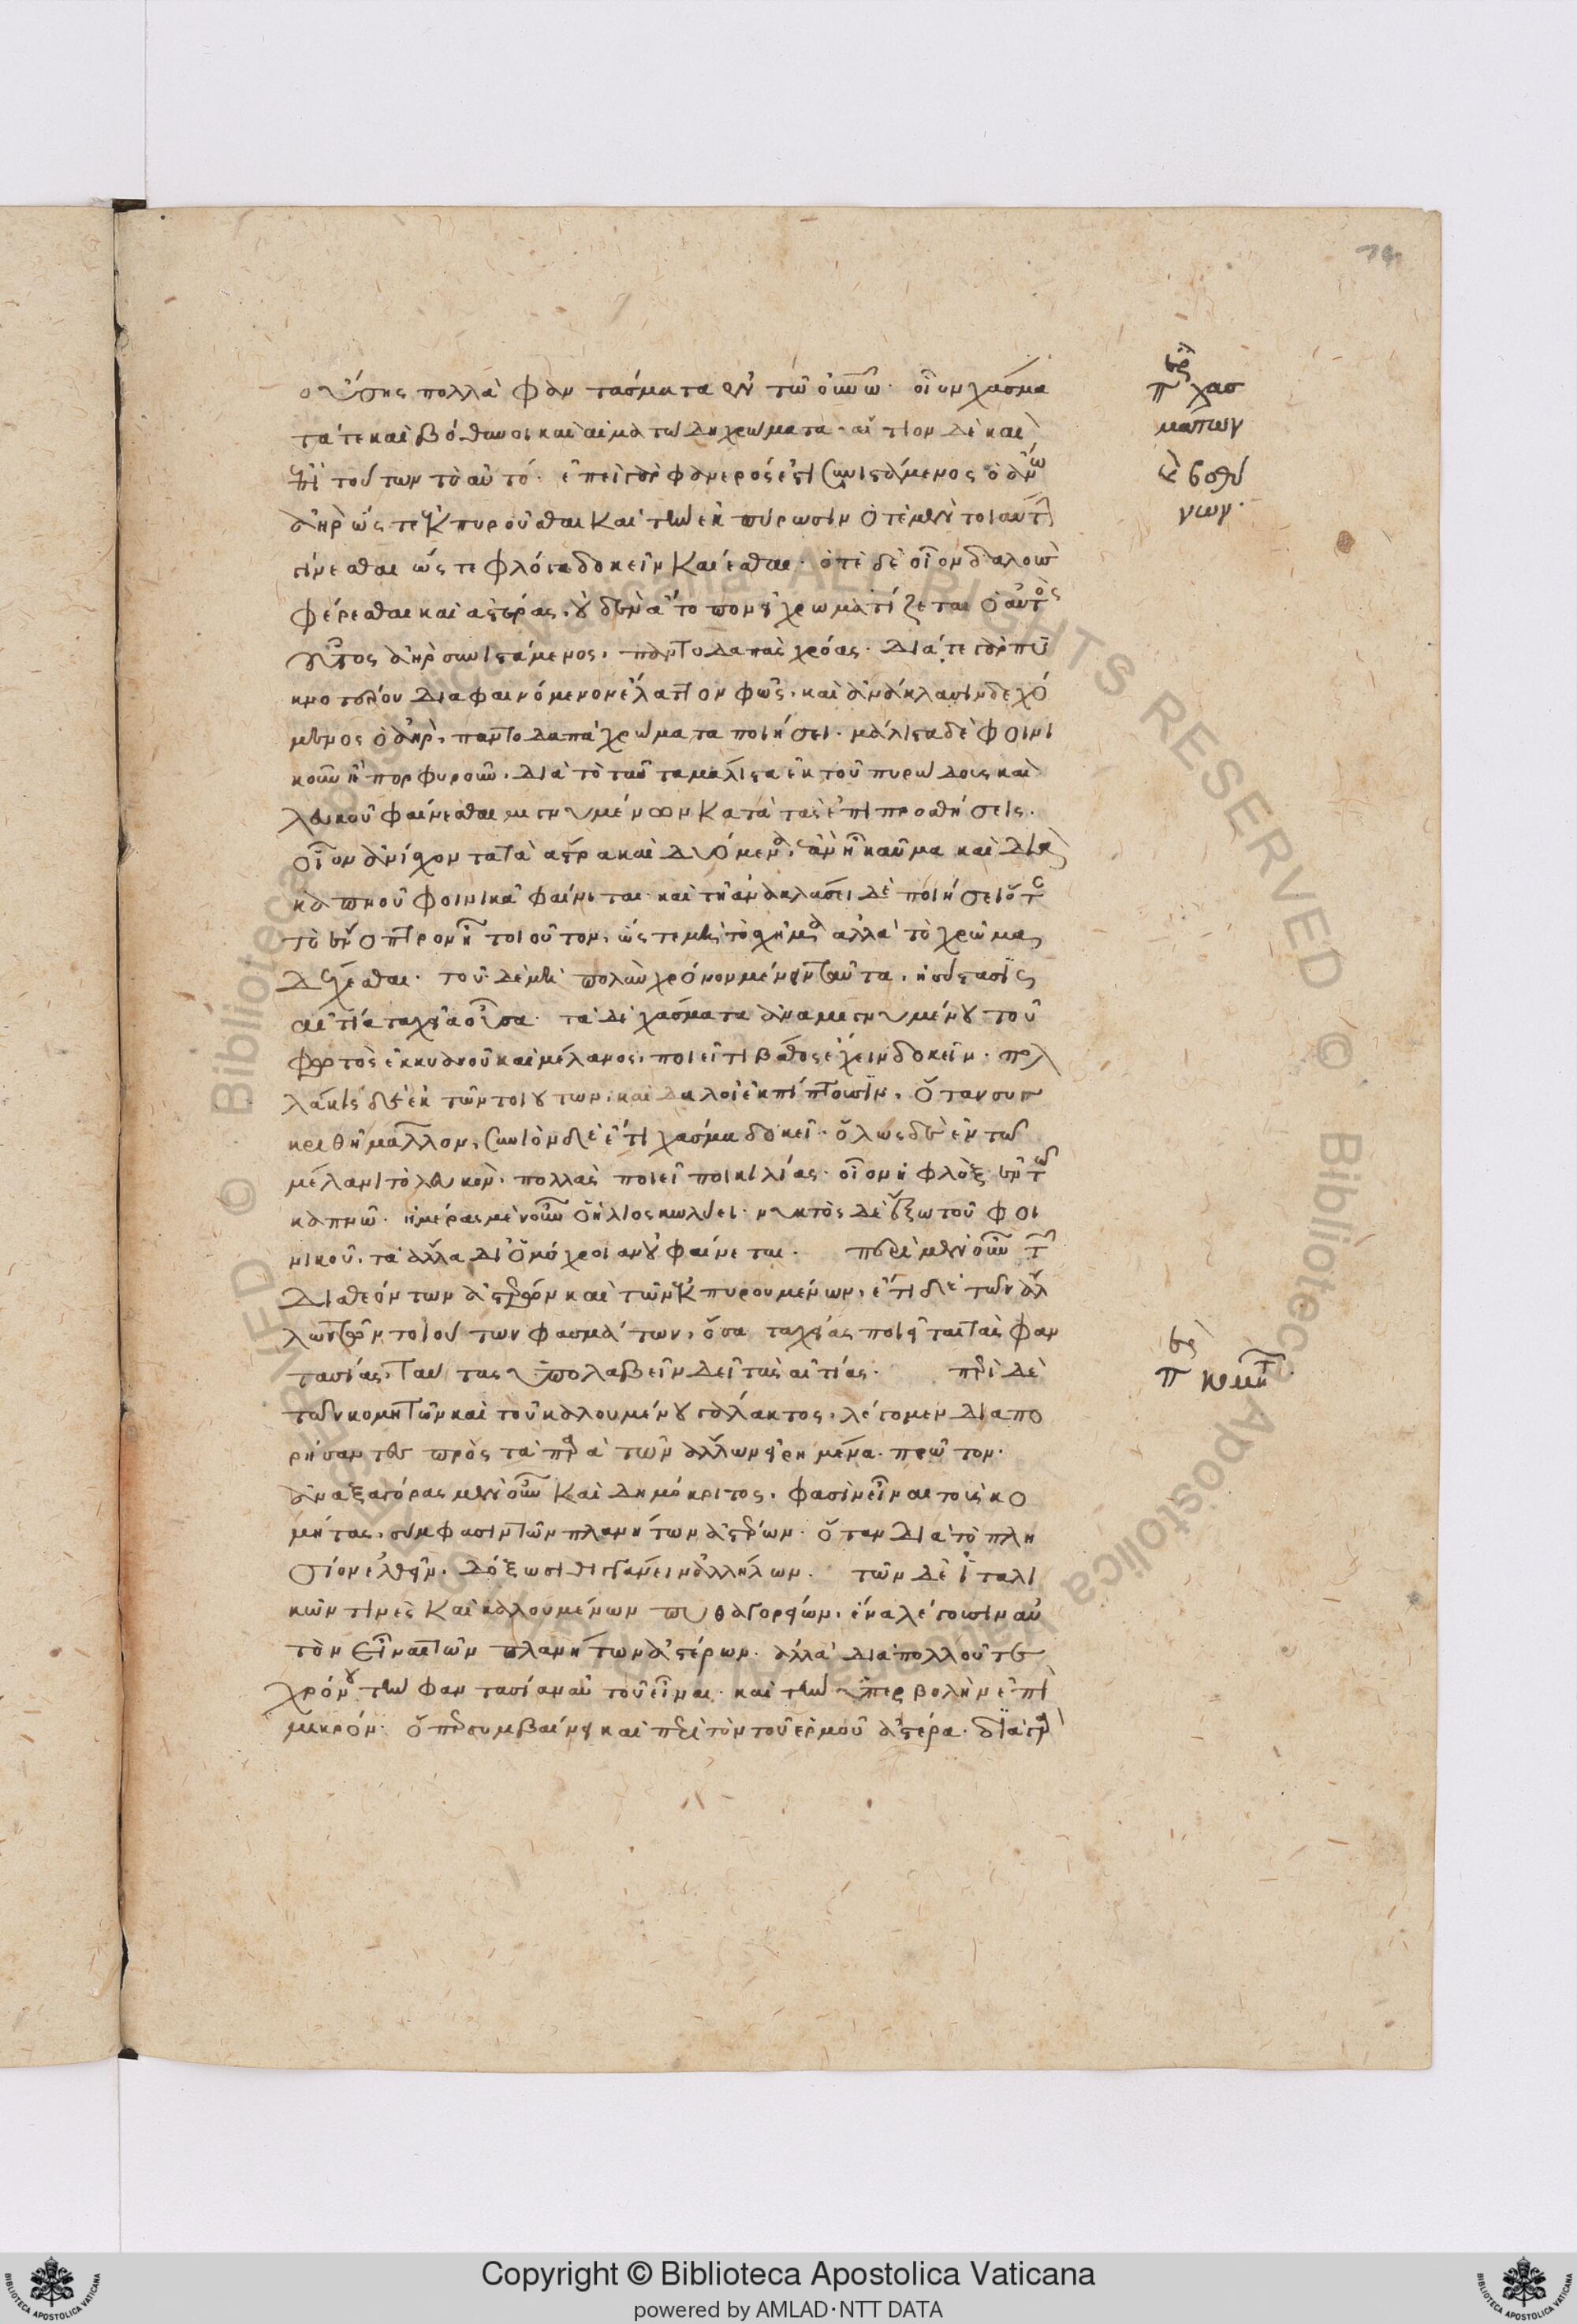 74
ούσης πολλὰ φαντάσματα ἐν τῶ οὐνῶ· οἷον χάσμα
τά τε καὶ βόθυνοι καὶ αἱματώδη χρώματα· αἴτιον δὲ καὶ
ἐπὶ τούτων τὸ αὐτό· ἐπεὶ γὰρ φανερός ἐστι συνιστάμενος ὁ ἄνω
ἀὴρ ὥστε ἐκπυροῦσθαι καὶ τὴν ἐκπύρωσιν ὁτὲ μὲν τοιαύτην
γίνεσθαι ὥστε φλόγα δοκεῖν καίεσθαι· ὁτὲ δὲ οἷον δαλοὺς
φέρεσθαι καὶ ἀστέρας, οὐδὲν ἄτοπον εἰ χρωματίζεται ὁ αὐτὸς
οὗτος ἀὴρ συνιστάμενος, παντοδαπὰς χρόας· διά τε γὰρ πυ
κνοτέρου διαφαινόμενον ἔλαττον φῶς, καὶ ἀνάκλασιν δεχό
μενος ὁ ἀὴρ, παντοδαπὰ χρώματα ποιήσει· μάλιστα δὲ φοινι
κοῦν ἢ πορφυροῦν, διὰ τὸ ταῦτα μάλιστα ἐκ τοῦ πυρώδους καὶ
λευκοῦ φαίνεσθαι μιγνυμένων κατὰ τὰς ἐπιπροσθήσεις·
οἷον ἀνίσχοντα τὰ ἄστρα καὶ δυόμενα, ἐὰν ἢ καῦμα καὶ διὰ
καπνοῦ φοινικᾶ φαίνεται· καὶ τῆ ἀνακλάσει δὲ ποιήσει ὅτ
τὸ ἔνοπτρον ἢ τοιοῦτον, ὥστε μὴ τὸ σχῆμα ἀλλὰ τὸ χρῶμα
δέχεσθαι· τοῦ δὲ μὴ πολὺν χρόνον μένειν ταῦτα, ἡ σύστασις
αἰτία ταχεῖα οὖσα· τὰ δὲ χάσματα ἀναμιγνυμένου τοῦ
φωτὸς ἐκ κυανοῦ καὶ μέλανος, ποιεῖ τι βάθος ἔχειν δοκεῖν· πολ
λάκις δὲ ἐκ τῶν τοιούτων, καὶ δαλοὶ ἐκπίπτουσιν, ὅταν συγ
κριθῆ μᾶλλον, συνιὸν δὲ ἔτι χάσμα δοκεῖ· ὅλως δὲ ἐν τῶ
μέλανι τὸ λευκὸν, πολλὰς ποιεῖ ποικιλίας· οἷον ἡ φλὸξ ἐν τῶ
καπνῶ· ἡμέρας μὲν οὖν ὁ ἥλιος κωλύει· νυκτὸς δὲ ἔξω τοῦ φοι
νικοῦ, τὰ ἄλλα δι᾽ ὁμόχροιαν οὐ φαίνεται· περὶ μὲν οὖν τῶν
διαθεόντων ἀστέρων καὶ τῶν ἐκπυρουμένων, ἔτι δὲ τῶν ἄλ
λων τῶν τοιούτων φασμάτων, ὅσα ταχείας ποιεῖται τὰς φαν
τασίας, ταύτας ὑπολαβεῖν δεῖ τὰς αἰτίας· περὶ δὲ
τῶν κομητῶν καὶ τοῦ καλουμένου γάλακτος, λέγομεν διαπο
ρήσαντες πρὸς τὰ παρὰ τῶν ἄλλων εἰρημένα· πρῶτον·
ἀναξαγόρας μὲν οὖν καὶ δημόκριτος, φασὶν εἶναι τοὺς κο
μήτας, σύμφασιν τῶν πλανήτων ἀστέρων· ὅταν διὰ τὸ πλη
σίον ἐλθεῖν, δόξωσι θιγγάνειν ἀλλήλων· τῶν δὲ ἰταλι
κῶν τινὲς καὶ καλουμένων πυθαγορείων, ἕνα λέγουσιν αὐ
τὸν εἶναι τῶν πλανήτων ἀστέρων· ἀλλὰ διὰ πολλοῦ τε
χρόνου τὴν φαντασίαν αὐτοῦ εἶναι· καὶ τὴν ὑπερβολὴν ἐπὶ
μικρόν· ὅπερ συμβαίνει καὶ περὶ τὸν τοῦ ἑρμοῦ ἀστέρα· διὰ γὰρ
περὶ χασ
μάτων
καὶ βοθύ
νων·
περὶ κομητῶν
© Biblioteca Apostolica Vaticana ALL RIGHTS RESERVED © Biblioteca Apostolica Vaticana ALL RIGHTS RESERVED
Copyright © Biblioteca Apostolica Vaticana
powered by AMLAD·NTT DATA
BIBLIOTECA APOSTOLICA VATICANA
BIBLIOTECA APOSTOLICA VATICANA